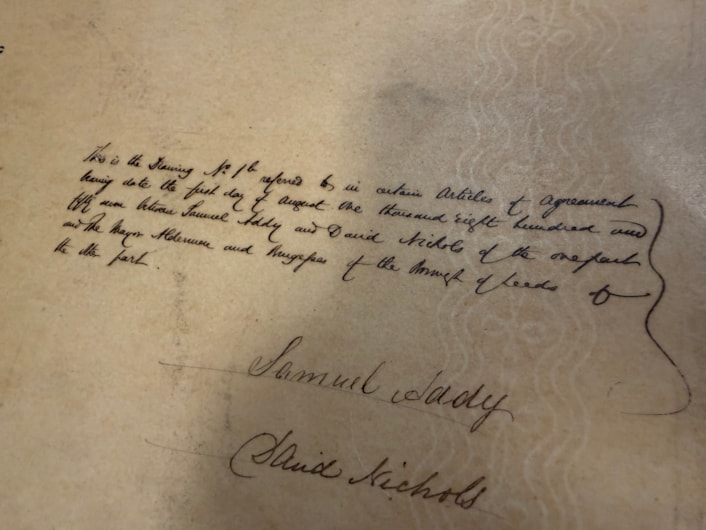 This is the Drawing No. 1b referred to in certain Articles of Agreement
bearing date the first day of August One thousand eight hundred and
fifty between Samuel Addy and David Nichols of the one part
and The Mayor Aldermen and Burgesses of the Borough of Leeds of
the other part.
Samuel Addy
David Nichols